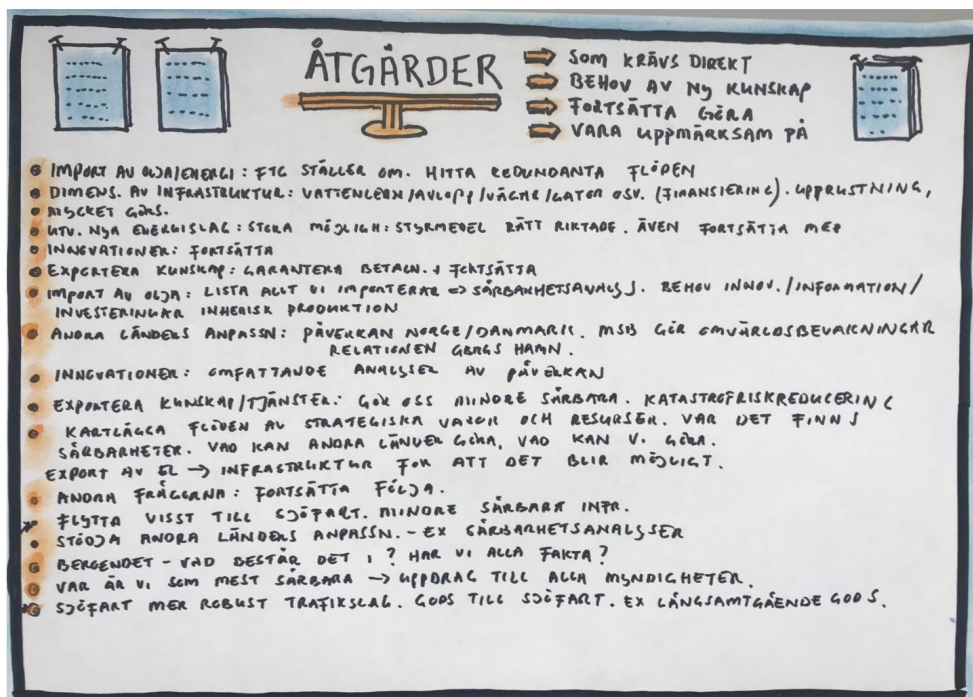 ÅTGÄRDER
SOM KRÄVS DIREKT
BEHOV AV NY KUNSKAP
FORTSÄTTA GÖRA
VARA UPPMÄRKSAM PÅ
IMPORT AV OLJA/ENERGI: FTG STÄLLER OM. HITTA REDUNDANTA FLÖDEN
DIMENS. AV INFRASTRUKTUR: VATTENLEDN/AVLOPP/VÄGAR/GATOR OSV. (FINANSIERING). UPPRUSTNING,
MYCKET GÖRS.
UTV. NYA ENERGISLAG: STORA MÖJLIGH: STYRMEDEL RÄTT RIKTADE. ÄVEN FORTSÄTTA MED
INNOVATIONER: FORTSÄTTA
EXPORTERA KUNSKAP: GARANTERA BETALN. + FORTSÄTTA
IMPORT AV OLJA: LISTA ALLT VI IMPORTERAR => SÅRBARHETSANALYS. BEHOV INNOV./INFORMATION/
INVESTERINGAR INHEMSK PRODUKTION
ANDRA LÄNDERS ANPASSN: PÅVERKAN NORGE/DANMARK. MSB GÖR OMVÄRLDSBEVAKNINGAR
RELATIONEN GBRGS HAMN.
INNOVATIONER: OMFATTANDE ANALYSER AV PÅVERKAN
EXPORTERA KUNSKAP/TJÄNSTER: GÖR OSS MINDRE SÅRBARA. KATASTROFRISKREDUCERING
KARTLÄGGA FLÖDEN AV STRATEGISKA VAROR OCH RESURSER. VAR DET FINNS
SÅRBARHETER. VAD KAN ANDRA LÄNDER GÖRA, VAD KAN VI GÖRA.
EXPORT AV EL → INFRASTRUKTUR FÖR ATT DET BLIR MÖJLIGT.
ANDRA FRÅGORNA: FORTSÄTTA FÖLJA.
FLYTTA VISST TILL SJÖFART. MINDRE SÅRBAR INFR.
STÖDJA ANDRA LÄNDERS ANPASSN. - EX SÅRBARHETSANALYSER
BEROENDET - VAD BESTÅR DET I? HAR VI ALLA FAKTA?
VAR ÄR VI SOM MEST SÅRBARA → UPPDRAG TILL ALLA MYNDIGHETER.
SJÖFART MER ROBUST TRAFIKSLAG. GODS TILL SJÖFART. EX LÅNGSAMTGÅENDE GODS.